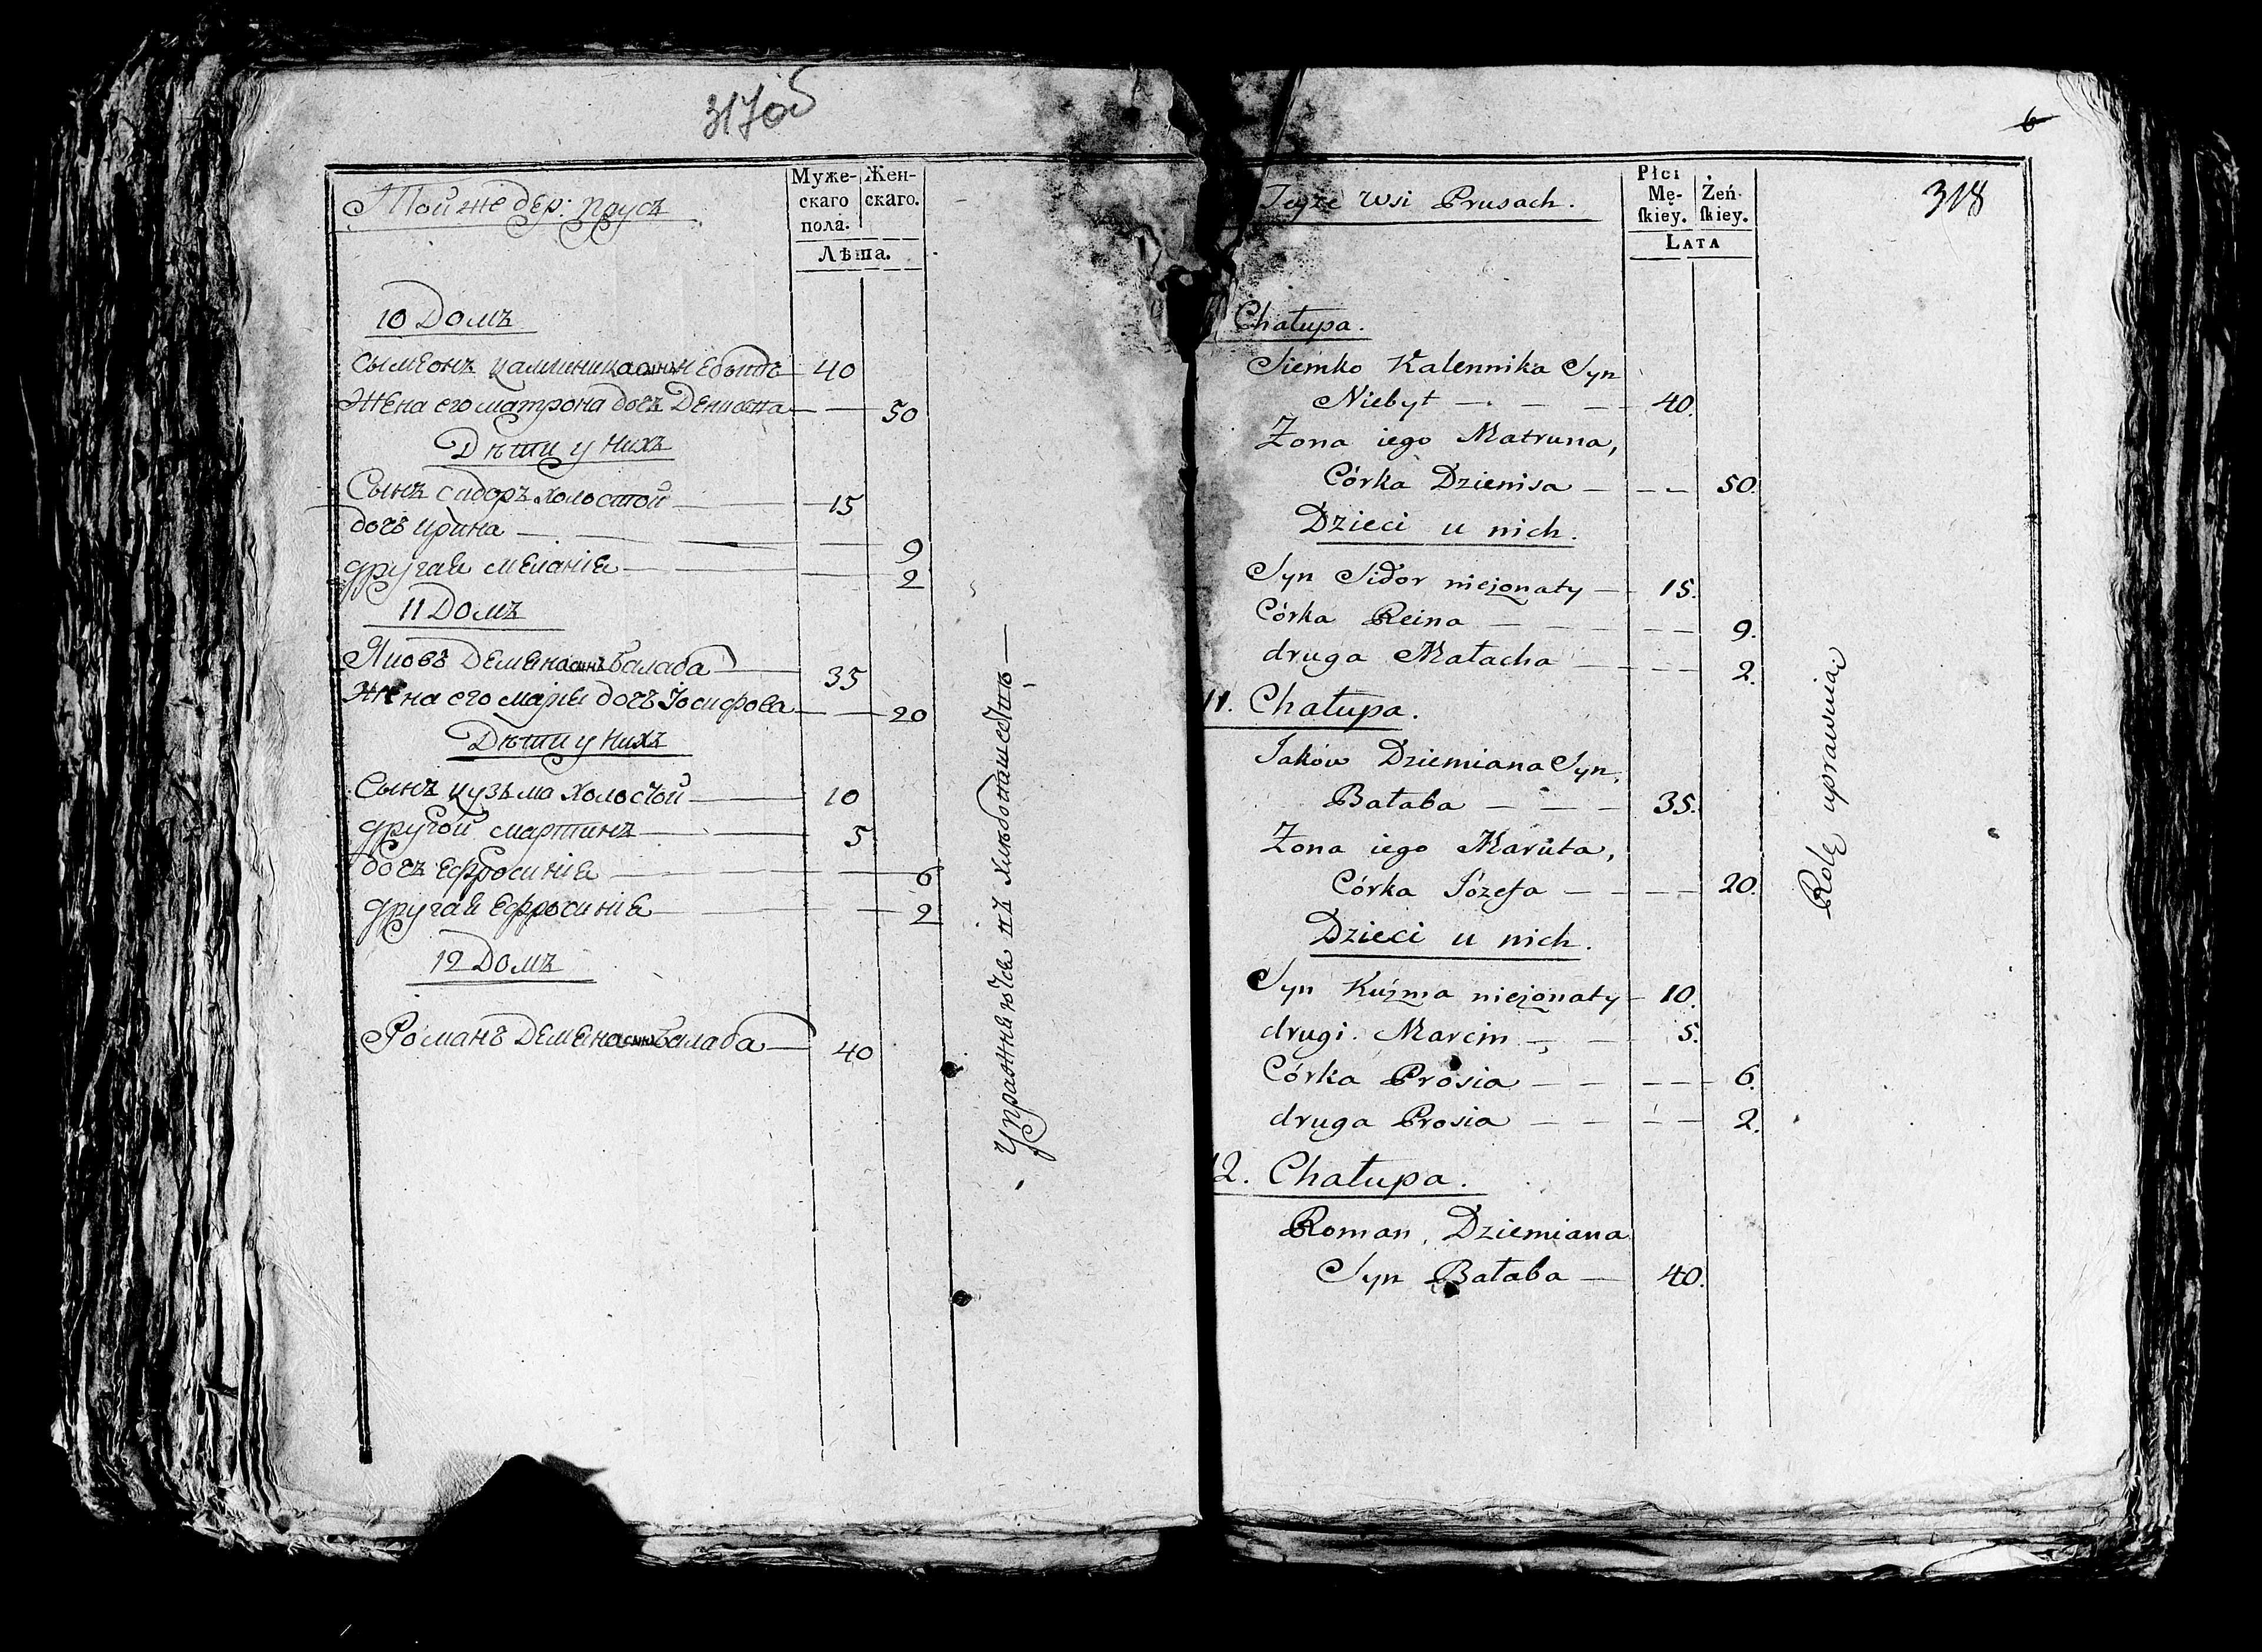 317об
Той же дер: Прусъ
Муже-
скаго
пола.
Жен-
скаго.
Лѣта.
10 Домъ
Сымеонъ Калиника сынъ Небытъ 40
Жена его матрона дочъ Дениса 50
Дѣти у нихъ
Сынъ сидоръ холостой 15
дочъ ирина 9
другая меланія 2
11 Домъ
Яковъ Демяна сынъ балаба 35
Жена его марья дочъ Іосифова 20
Дѣти у нихъ
Сынъ кузьма холостой 10
другой мартинъ 5
дочъ ефросинія 6
другая ефросинія 2
12 Домъ
Романъ Демяна сынъ балаба 40
Упражняются въ хлѣбопашествѣ
6
318
Teyże Wsi Prusach.
Płci
Mę-
ſkiey.
Żeń-
ſkiey.
LATA
Chałupa.
Siemko Kalennika Syn
Niebyt 40.
Żona iego Matruna,
Córka Dzienisa 50.
Dzieci u nich.
Syn Sidor nieżonaty 15.
Córka Reina 9.
druga Małacha 2.
11. Chałupa.
Jaków Dziemiana Syn,
Bałaba 35.
Żona iego Maruta,
Córka Józefa 20.
Dzieci u nich.
Syn Kuźma nieżonaty 10.
drugi Marcin 5.
Córka Prosia 6.
druga Prosia 2.
12. Chałupa.
Roman, Dziemiana
Syn Bałaba 40.
Rolę uprawuia